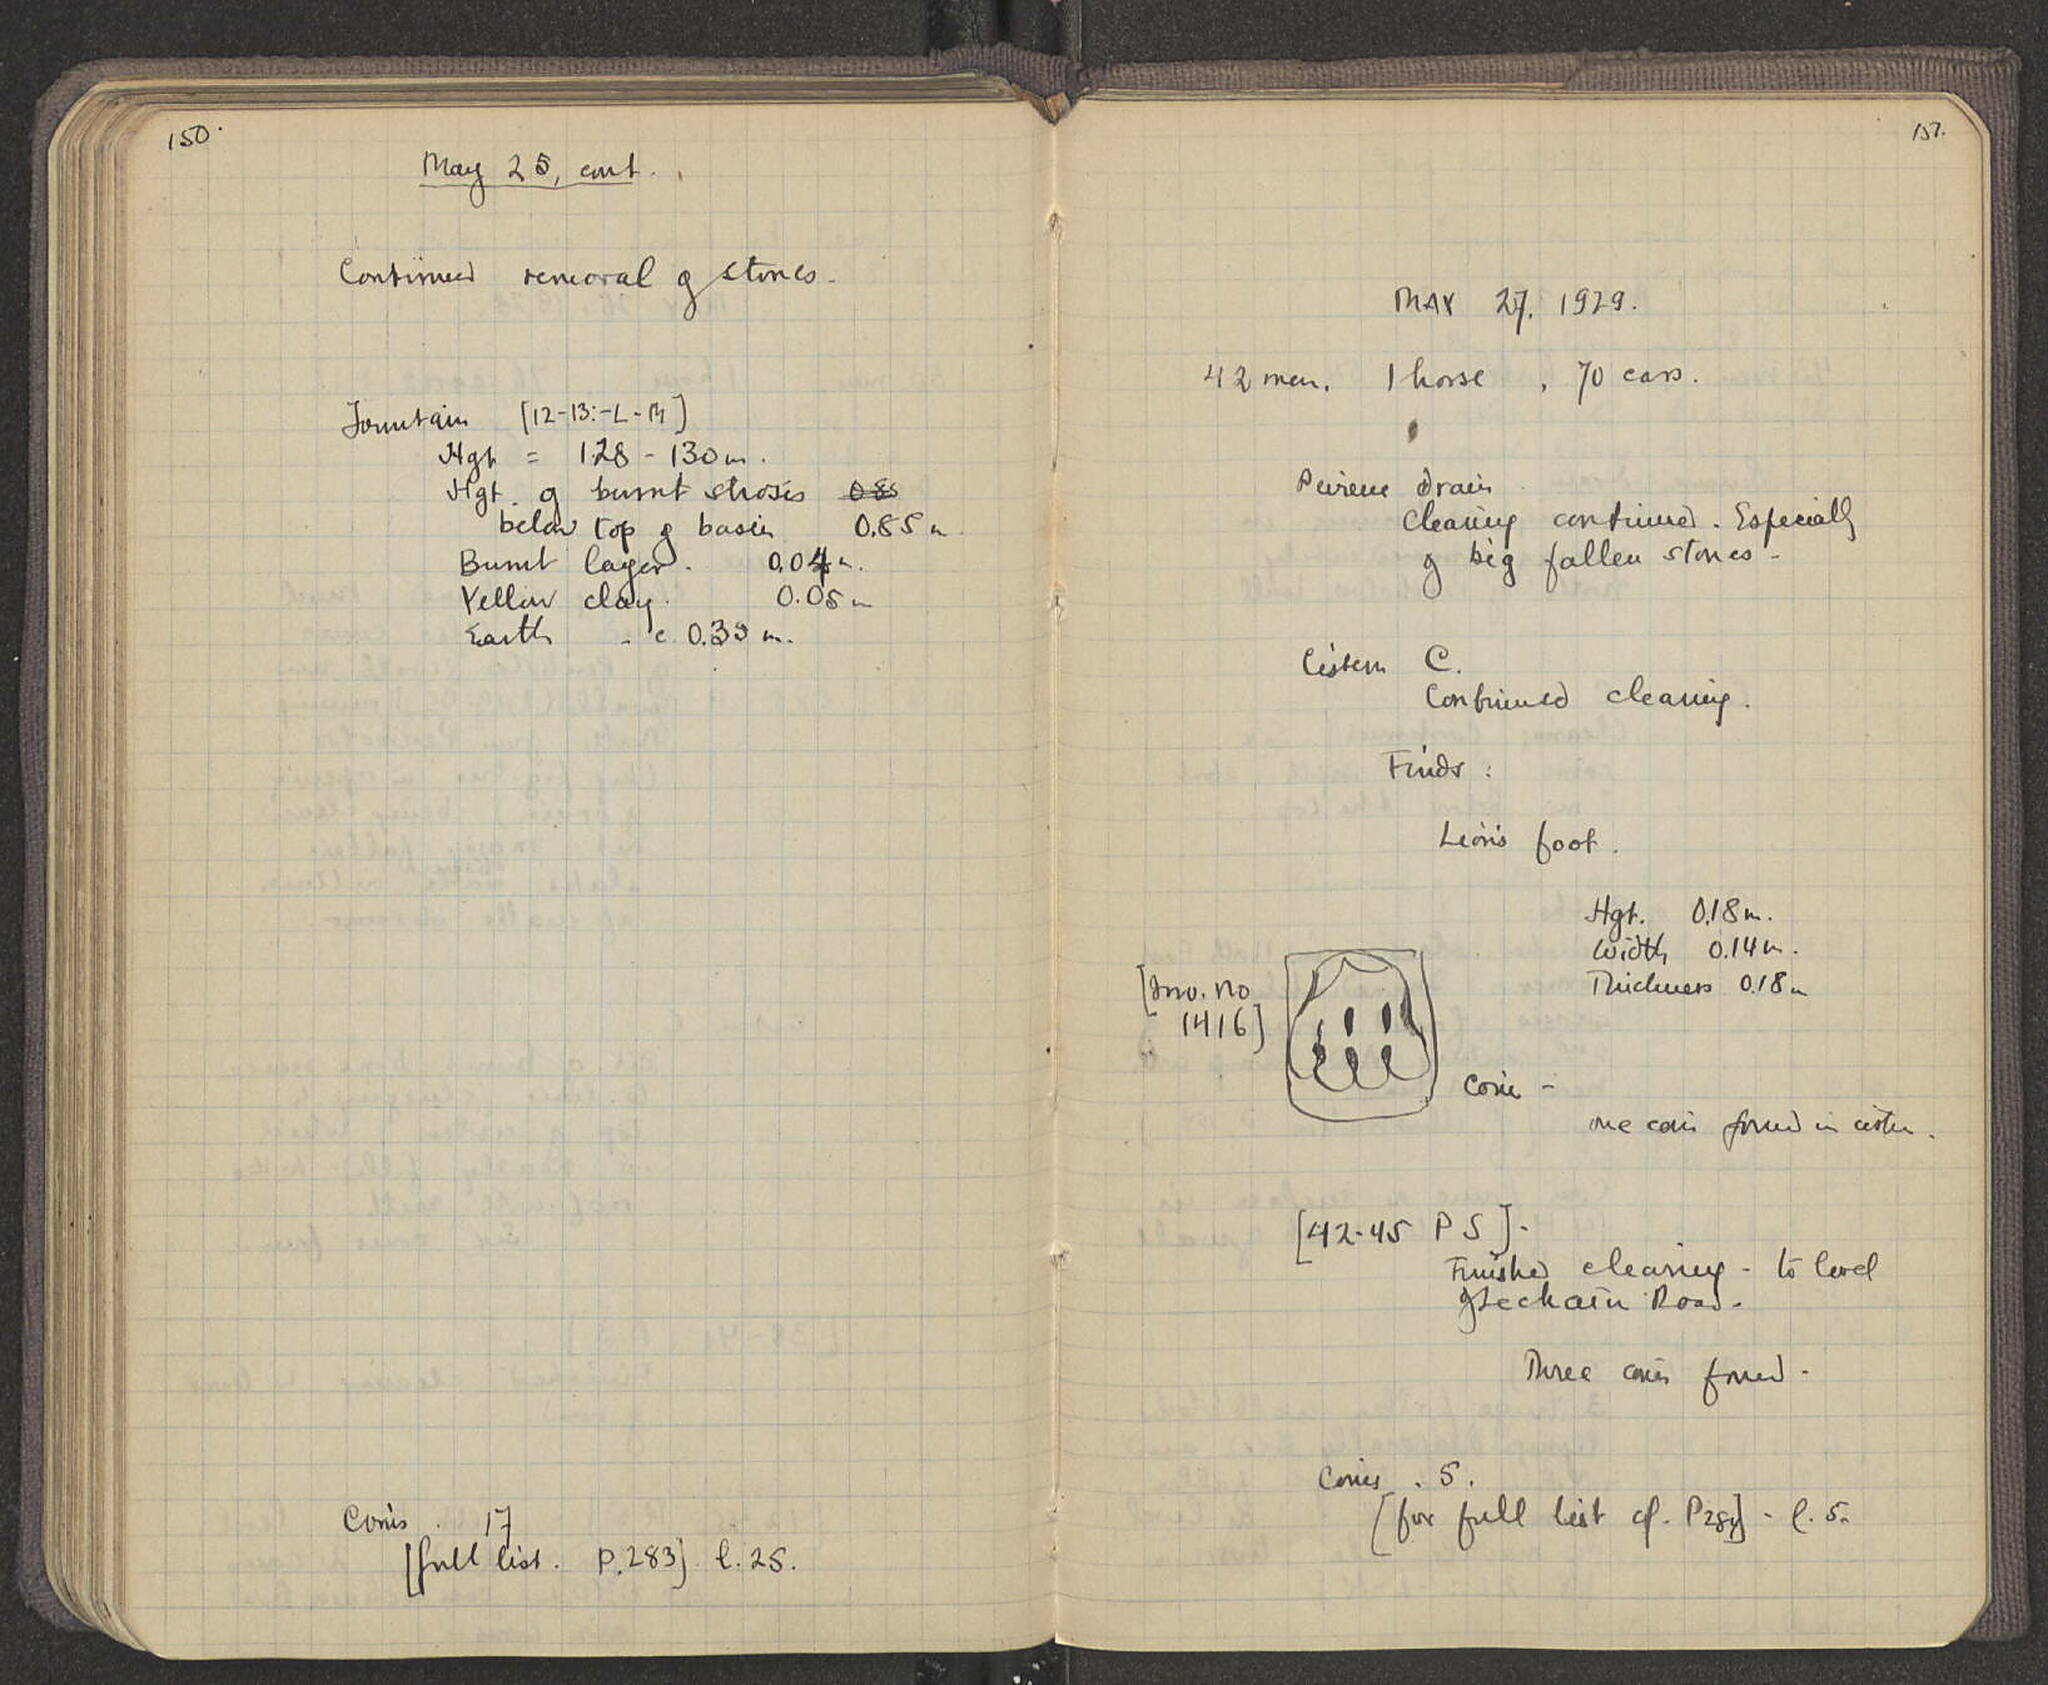 150.
May 25, cont.
Continued removal of stones.
Fountain [12-13:-L-M]
Hgt = 1.28 - 1.30 m.
Hgt. of burnt stroses 0.85
below top of basin 0.85 m
Burnt layer. 0.04 m.
Yellow clay. 0.05 m
Earth - c 0.35 m.
Coins. 17
[full list. P.283] l.25.
151.
MAY 27. 1929.
42 men. 1 horse, 70 cars.
Peirene Drain
Clearing continued. Especially
of big fallen stones -
Cistern C.
Continued clearing.
Finds:
Lion's foot.
Hgt. 0.18 m.
Width 0.14 m.
Thickness 0.18 m
[Inv. no
1416]
Coin -
one coin found in cistern.
[42-45 P S] -
Finished clearing - to level
of Lechaeu Road.
Three coins found -
Coins. 5.
[for full list cf. P284] - l. 5.